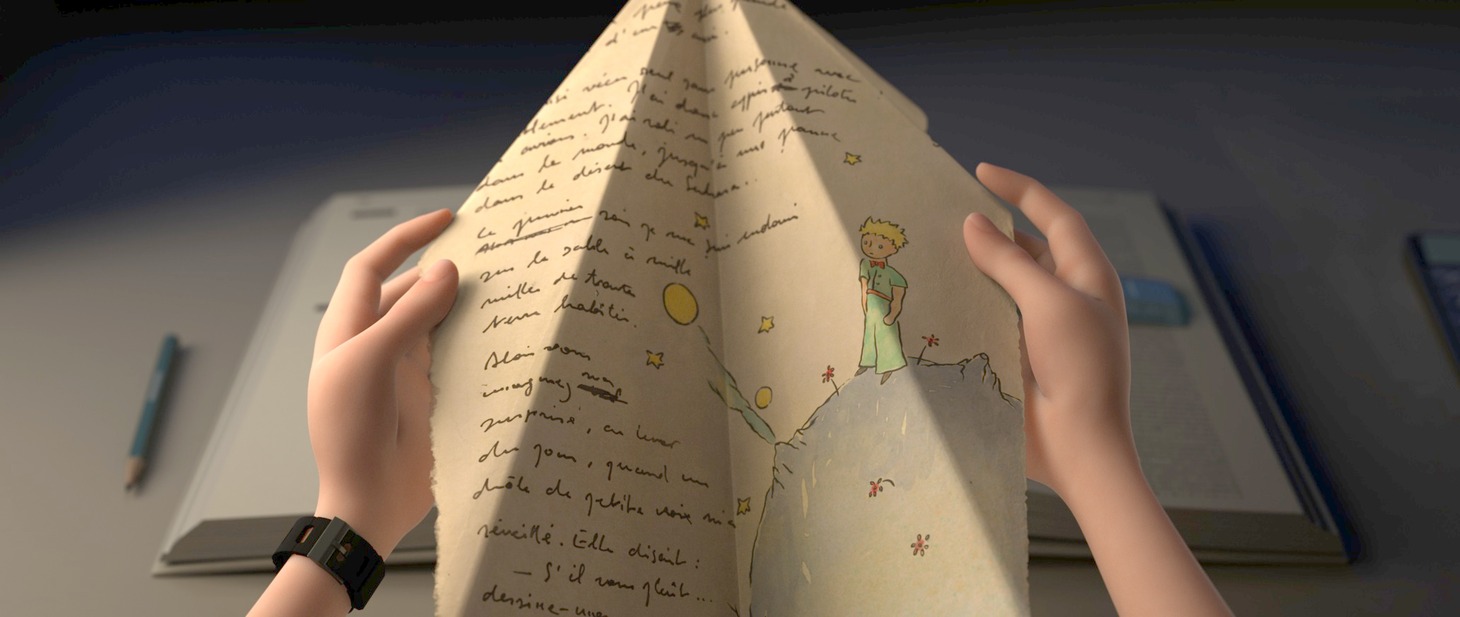 vécu seul sans personne avec
J'ai donc appris à piloter
avions. J'ai volé un peu partout
dans le monde, jusqu'à une panne
dans le désert du Sahara...
Le premier soir je me suis endormi
sur le sable à mille
milles de toute
terre habitée.
Alors vous
imaginez ma
surprise, au lever
du jour, quand un
drôle de petite voix m'a
réveillé. Elle disait :
— S'il vous plaît...
dessine-